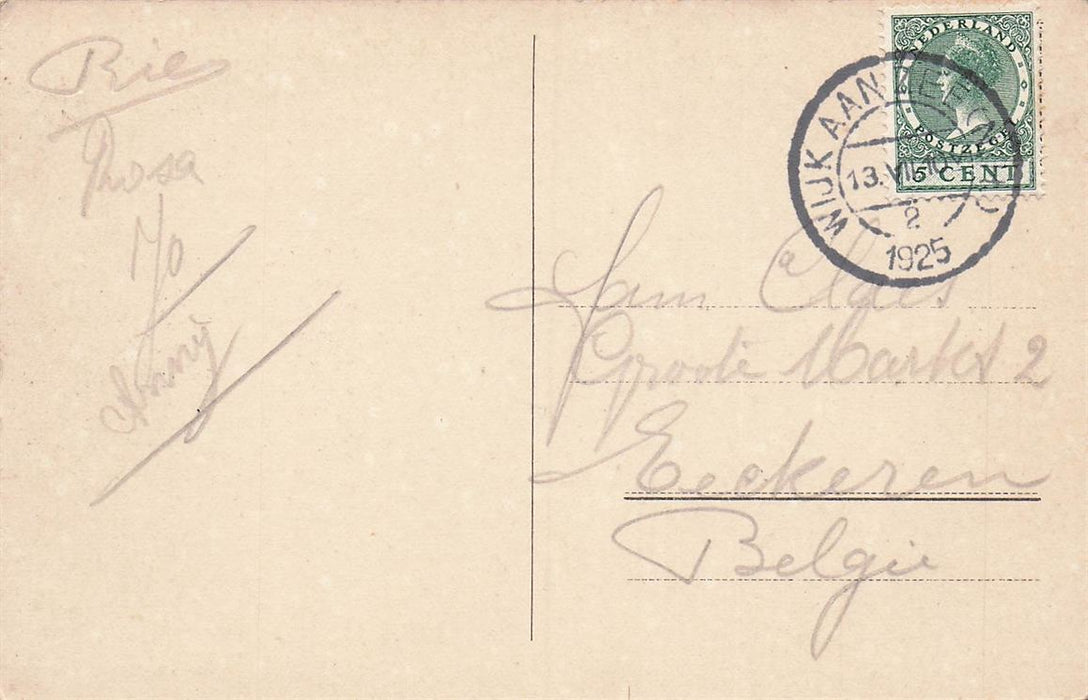 Rie
Rosa
Jo
Anny
NEDERLAND
POSTZEGEL
5 CENT
WIJK AAN ZEE
13.VII
2
1925
Fam Claes
Groote Markt 2
Eeckeren
Belgie